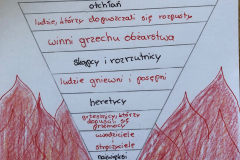 otchłań
ludzie, którzy dopuszczali się rozpusty
winni grzechu obżarstwa
skąpcy i rozrzutnicy
ludzie gniewni i posępni
heretycy
grzesznicy, którzy
dopuścili się
przemocy
uwodziciele
stręczyciele
najwięksi